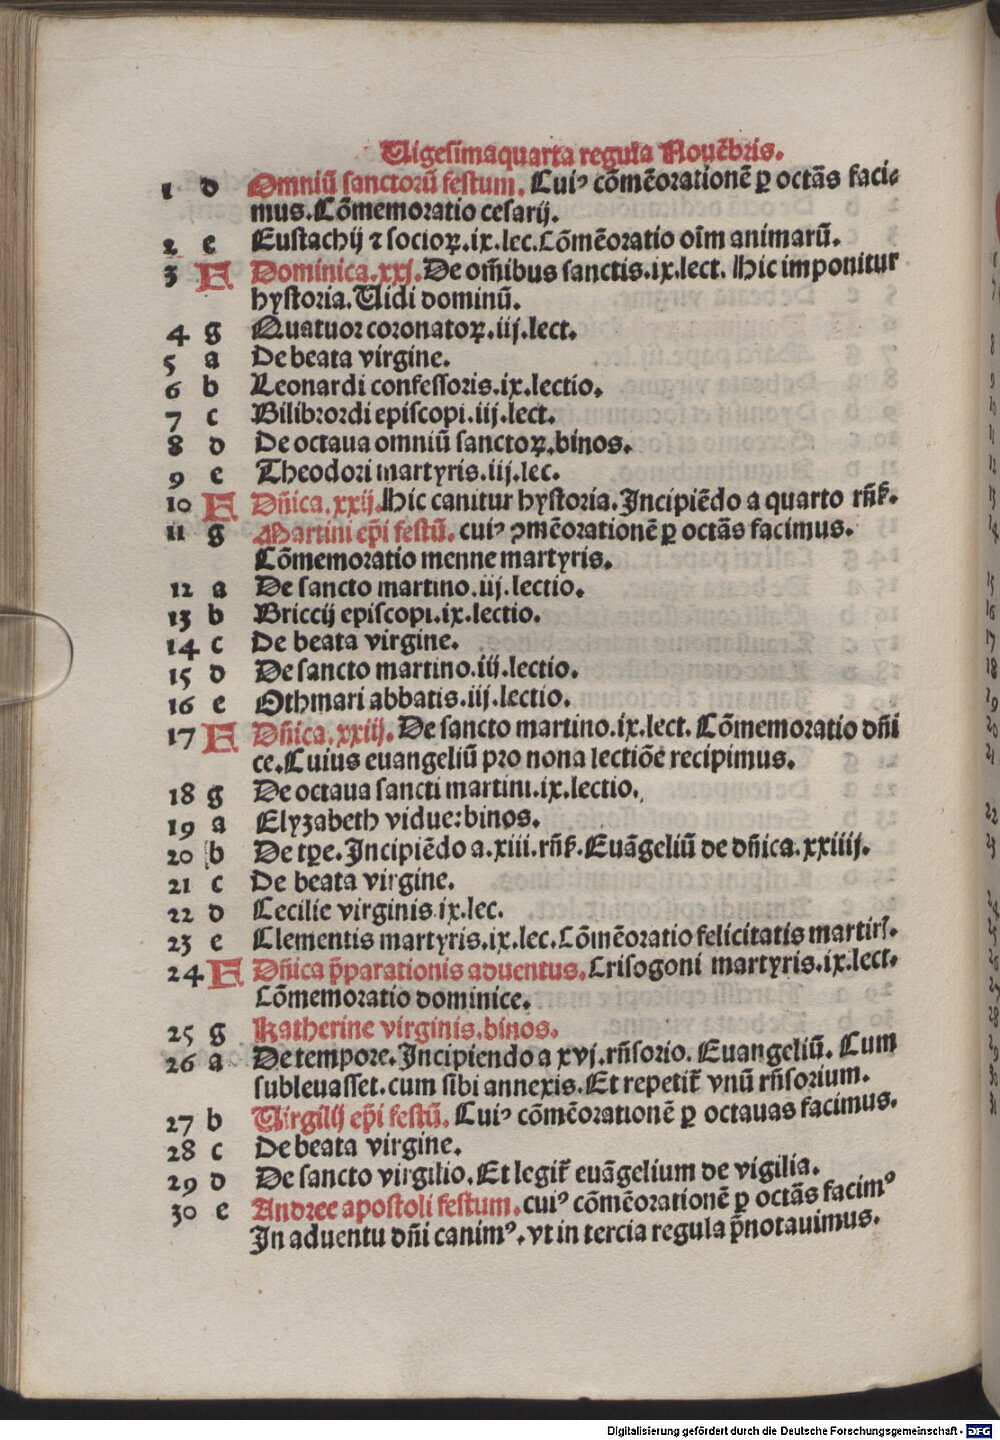 Uigesimaquarta regula Nouēbris.
1 d Omniū sanctorū festum. Cuiꝰ cōmēorationē ꝑ octās faci-
mus. Cōmemoratio cesarij.
2 e Eustachij ⁊ socioꝝ.ix.lec.Cōmēoratio oīm animarū.
3 F Dominica.xxj.De om̄ibus sanctis.ix.lect. Hic imponitur
hystoria.Uidi dominū.
4 g Quatuor coronatoꝝ.iij.lect.
5 a De beata virgine.
6 b Leonardi confessoris.ix.lectio.
7 c Bilibrordi episcopi.iij.lect.
8 d De octaua omniū sanctoꝝ.binos.
9 e Theodori martyris.iij.lec.
10 F Dn̄ica.xxij.Hic canitur hystoria.Incipiēdo a quarto rn̄ẜ.
11 g Martini ep̄i festū. cuiꝰ ꝯmēorationē ꝑ octās facimus.
Cōmemoratio menne martyris.
12 a De sancto martino.iij.lectio.
13 b Briccij episcopi.ix.lectio.
14 c De beata virgine.
15 d De sancto martino.iij.lectio.
16 e Othmari abbatis.iij.lectio.
17 F Dn̄ica.xxiij. De sancto martino.ix.lect. Cōmemoratio dn̄i
ce.Cuius euangeliū pro nona lectiōe recipimus.
18 g De octaua sancti martini.ix.lectio.
19 a Elyzabeth vidue:binos.
20 b De tꝑe.Incipiēdo a.xiii.rn̄ẜ.Euāgeliū de dn̄ica.xxiiij.
21 c De beata virgine.
22 d Cecilie virginis.ix.lec.
23 e Clementis martyris.ix.lec.Cōmēoratio felicitatis martirꝭ.
24 F Dn̄ica p̄parationis aduentus.Crisogoni martyris.ix.lect.
Cōmemoratio dominice.
25 g Katherine virginis.binos.
26 a De tempore.Incipiendo a xvj.rn̄sorio. Euangeliū. Cum
subleuasset.cum sibi annexis.Et repetit̄ vnū rn̄sorium.
27 b Uirgilij ep̄i festū. Cuiꝰ cōmēorationē ꝑ octauas facimus.
28 c De beata virgine.
29 d De sancto virgilio.Et legit̄ euāgelium de vigilia.
30 e Andree apostoli festum.cuiꝰ cōmēorationē ꝑ octās facimꝰ
In aduentu dn̄i canimꝰ.vt in tercia regula p̄notauimus.
Digitalisierung gefördert durch die Deutsche Forschungsgemeinschaft - DFG